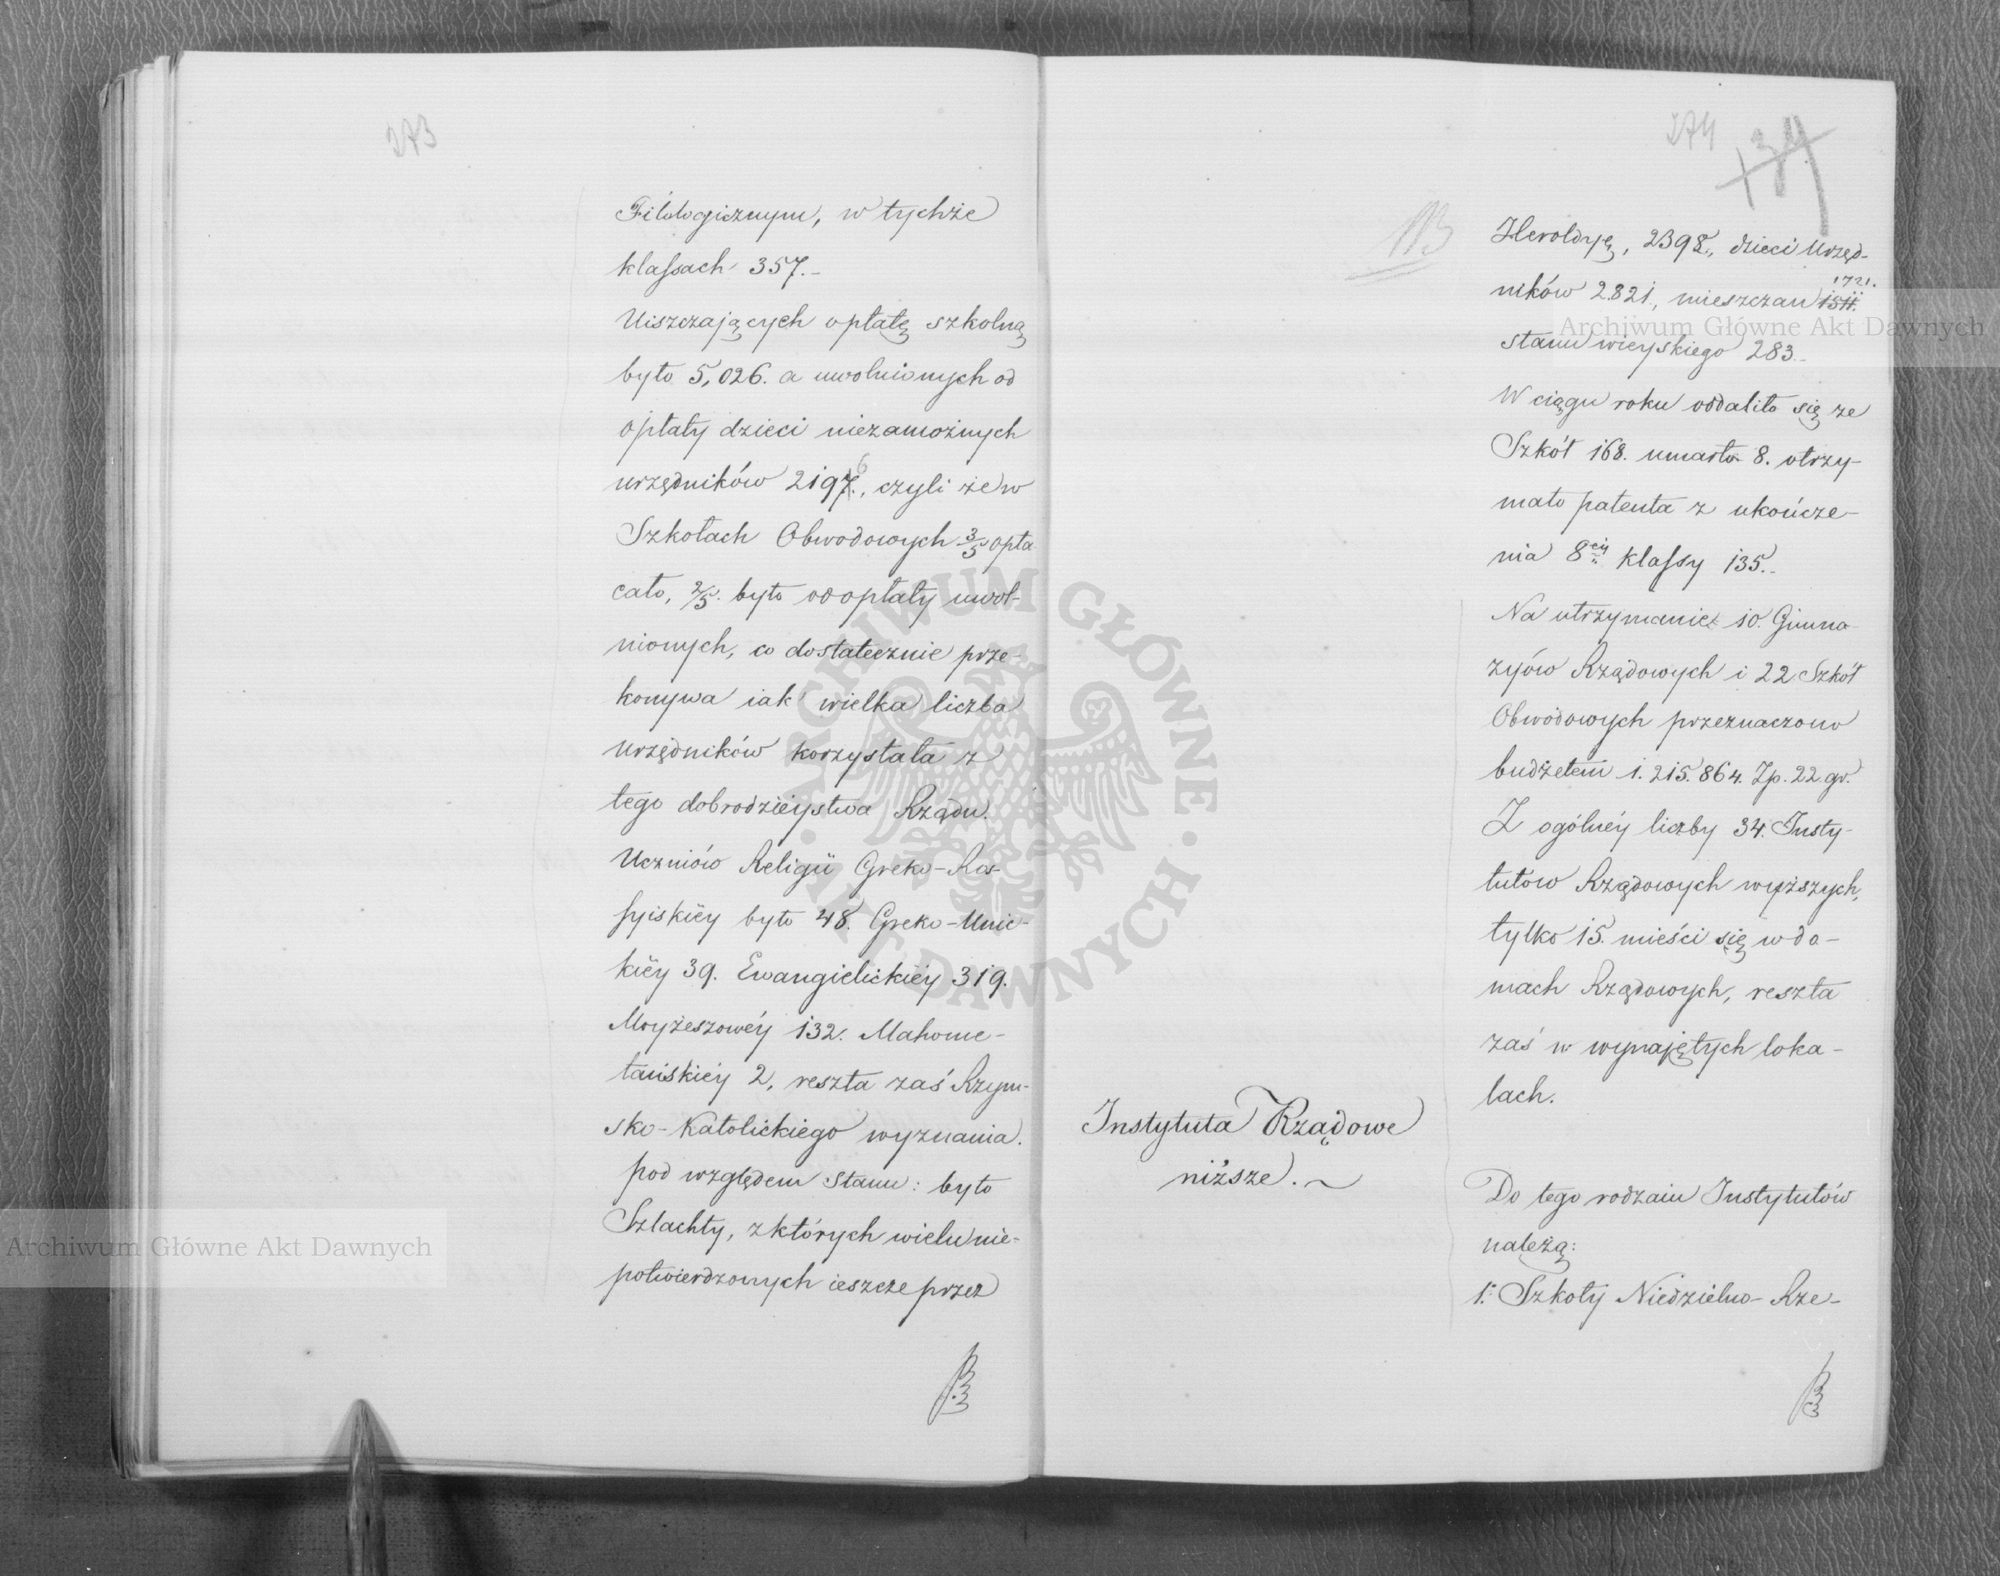 273
Filologicznym, w tychże
klassach 357.–
Uiszczających opłatę szkolną
było 5,026. a uwolnionych od
opłaty dzieci niezamożnych
urzędników 2197., czyli że w
6
Szkołach Obwodowych 3/5 opła
cało, 2/5. było od opłaty uwol-
nionych, co dostatecznie prze-
konywa iak wielka liczba
urzędników korzystała z
tego dobrodzieystwa Rządu.
Uczniów Religii Greko-Ros-
syiskiéy było 48. Greko-Unic-
kiéy 39. Ewangielickiéy 319.
Moyżeszowéy 132. Mahome-
tańskiéy 2, reszta zaś Rzym-
sko-Katolickiego wyznania.
pod względem stanu: było
Szlachty, z których wielu nie-
potwierdzonych ieszcze przez
274
134
113
Heroldyę, 2398., dzieci Urzęd-
ników 2821., mieszczan 1511.
1721.
stanu wieyskiego 283.–
W ciągu roku oddaliło się ze
Szkół 168. umarło 8. otrzy-
mało patenta z ukończe-
nia 8éy klassy 135.–
Na utrzymanie 10. Gimna-
zyów Rządowych i 22 Szkół
Obwodowych przeznaczono
budżetem 1.215.864. Zp. 22 gr.
Z ogólnéy liczby 34. Insty-
tutów Rządowych wyższych,
tylko 15. mieści się w do-
mach Rządowych, reszta
zaś w wynajętych loka-
lach.
Instytuta Rządowe
niższe. ~
Do tego rodzaiu Instytutów
należą:
1. Szkoły Niedzielno-Rze-
Archiwum Główne Akt Dawnych
Archiwum Główne Akt Dawnych
ARCHIWUM GŁÓWNE · AKT DAWNYCH ·